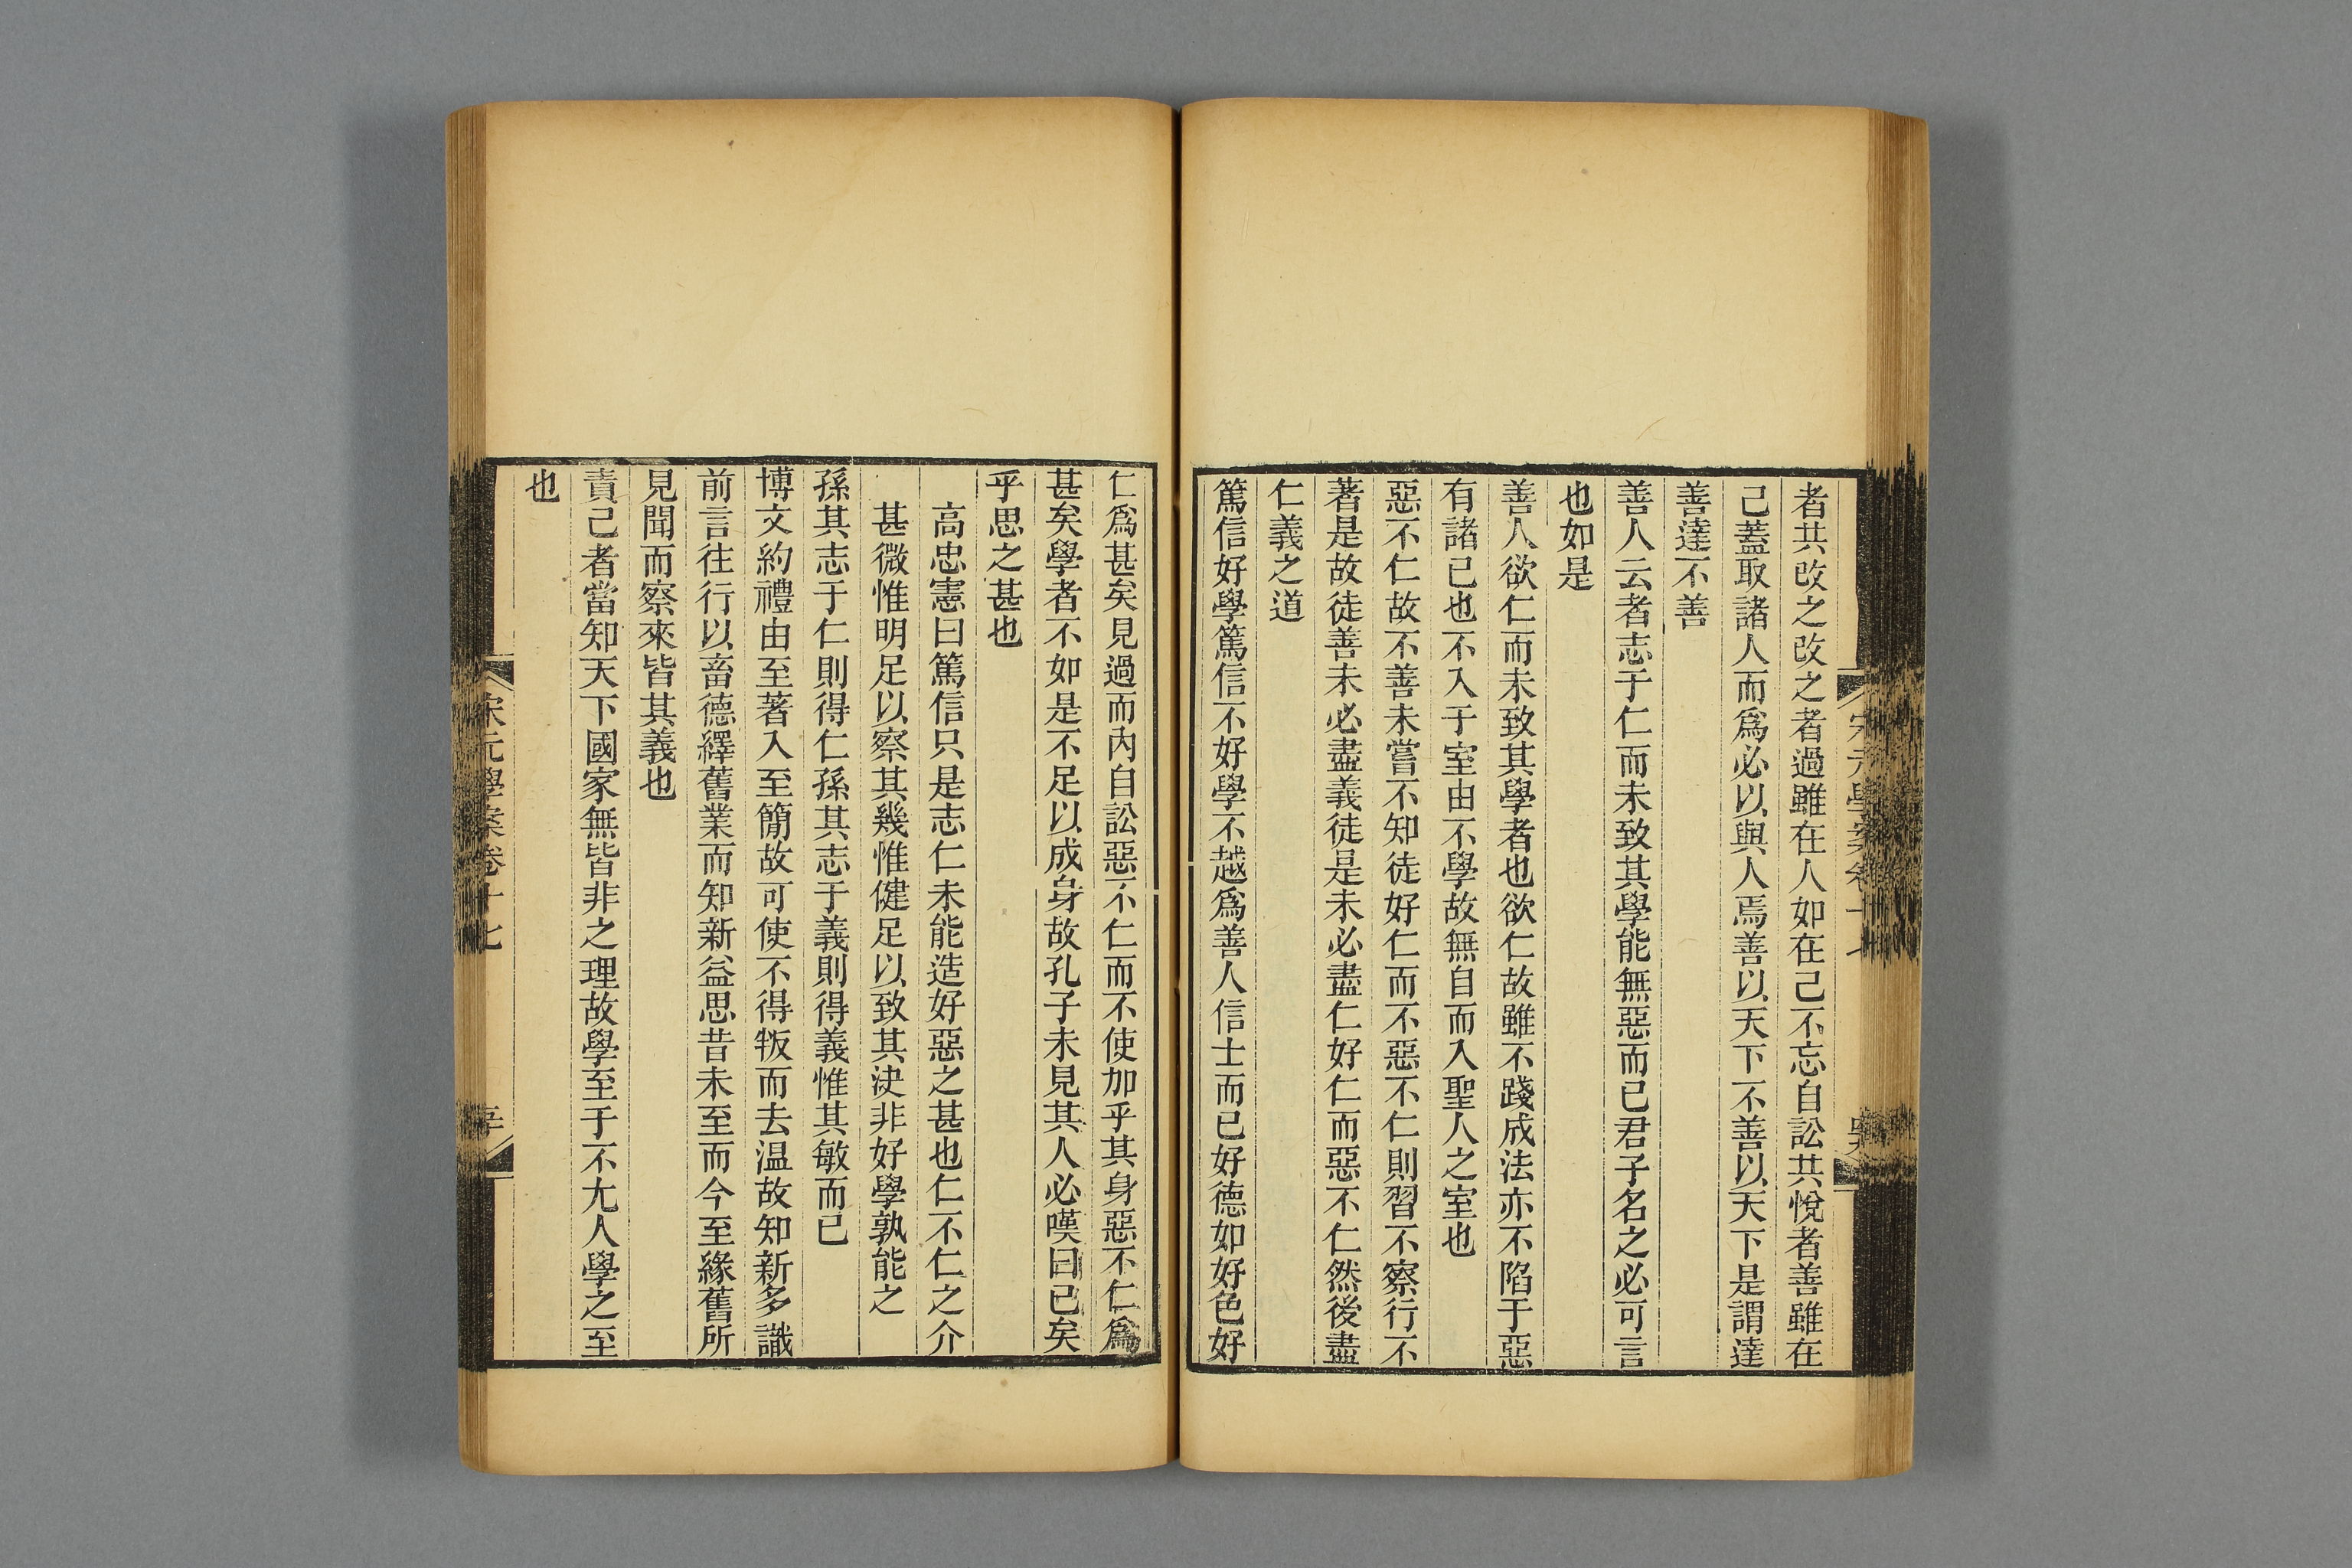 者共改之改之者過雖在人如在己不忘自訟共悅者善雖在
己蓋取諸人而爲必以與人焉善以天下不善以天下是謂達
善達不善
善人云者志于仁而未致其學能無惡而已君子名之必可言
也如是
善人欲仁而未致其學者也欲仁故雖不踐成法亦不陷于惡
有諸已也不入于室由不學故無自而入聖人之室也
惡不仁故不善未嘗不知徒好仁而不惡不仁則習不察行不
著是故徒善未必盡義徒是未必盡仁好仁而惡不仁然後盡
仁義之道
篤信好學篤信不好學不越爲善人信士而已好德如好色好
仁爲甚矣見過而內自訟惡不仁而不使加乎其身惡不仁爲
甚矣學者不如是不足以成身故孔子未見其人必嘆曰已矣
乎思之甚也
高忠憲曰篤信只是志仁未能造好惡之甚也仁不仁之介
甚微惟明足以察其幾惟健足以致其決非好學孰能之
孫其志于仁則得仁孫其志于義則得義惟其敏而已
博文約禮由至著入至簡故可使不得叛而去温故知新多識
前言往行以畜德繹舊業而知新益思昔未至而今至緣舊所
見聞而察來皆其義也
責己者當知天下國家無皆非之理故學至于不尤人學之至
也
宋元學案卷十七